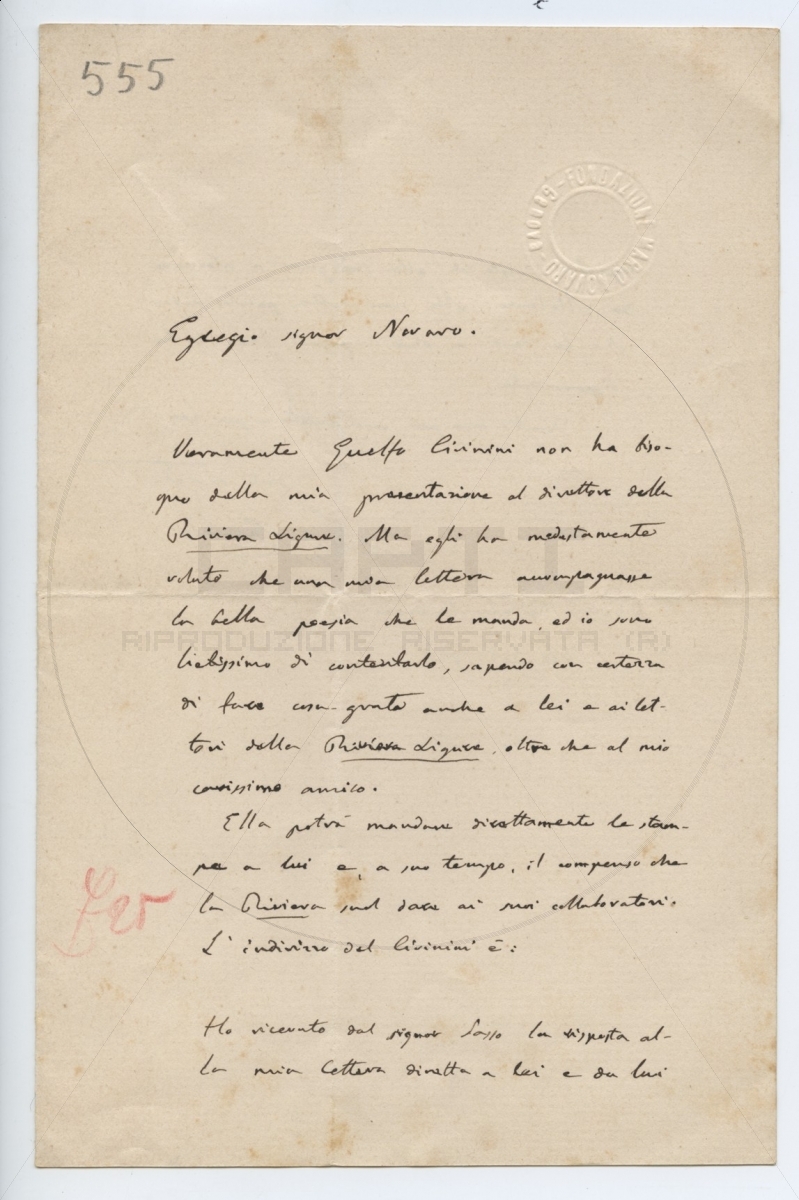 555
FONDAZIONE MARIO NOVARO - GENOVA
Egregio signor Novaro.
Veramente Guelfo Civinini non ha biso-
gno della mia presentazione al direttore della
Riviera Ligure. Ma egli ha modestamente
voluto che una mia lettera accompagnasse
la bella poesia che le manda, ed io sono
RIPRODUZIONE RISERVATA (R)
lietissimo di contentarlo, sapendo con certezza
di fare cosa grata anche a lei e ai let-
tori della Riviera Ligure, oltre che al mio
carissimo amico.
Ella potrà mandare direttamente le stam-
pe a lui e, a suo tempo, il compenso che
la Riviera suol dare ai suoi collaboratori.
£ 25
L'indirizzo del Civinini è:
Ho ricevuto dal signor Sasso la risposta al-
la mia lettera diretta a lei e da lui